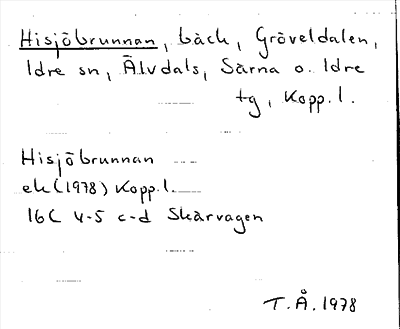 Hisjöbrunnan, bäck, Gröveldalen,
Idre sn, Älvdals, Särna o. Idre
tg, Kopp. l.
Hisjöbrunnan
ek (1978) Kopp. l.
16C 4-5 c-d Skärvagen
T.Å. 1978